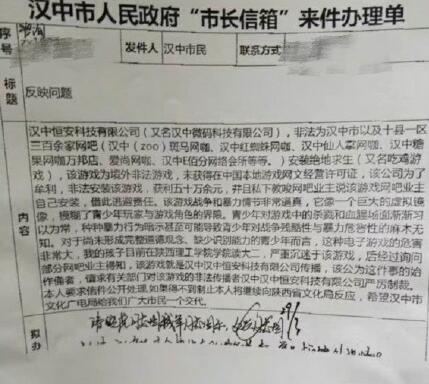 汉中市人民政府“市长信箱”来件办理单
序号
发件人
汉中市民
联系方式
标题
反映问题
内容
汉中恒安科技有限公司（又名汉中微码科技有限公司），非法为汉中市以及十县一区
三百余家网吧（汉中（zoo）斑马网咖、汉中红蜘蛛网咖、汉中仙人掌网咖、汉中糖
果网咖万邦店、爱尚网咖、汉中E佰分网络会所等等。）安装绝地求生（又名吃鸡游
戏），该游戏为境外非法游戏，未获得在中国本地游戏网文经营许可证，该公司为了
牟利，非法安装该游戏，获利五十万余元，并且私下教唆网吧业主说该游戏网吧业主
自己安装，借此逃避责任。该游戏战争和暴力情节非常逼真，它像一个巨大的虚拟镜
像，模糊了青少年玩家与游戏角色的界限。青少年对游戏中的杀戮和血腥场面渐渐习
以为常，种种暴力行为暗示甚至可能导致青少年对战争残酷性与暴力危害性的麻木无
知。对于尚未形成完整道德观念、缺少识别能力的青少年而言，这种电子游戏的危害
非常大，我的孩子目前在陕西理工学院学院读大二，严重沉迷于该游戏，后经过询问
部分网吧业主得知，该游戏就是汉中汉中恒安科技有限公司传播，该公为这件事的始
作俑者，请求有关部门对该游戏的非法传播者汉中汉中恒安科技有限公司严厉制裁。
本人要求信件公开处理，如果得不到制止本人将继续向陕西省文化局反应，希望汉中市
文化广电局给我们广大市民一个交代。
拟办